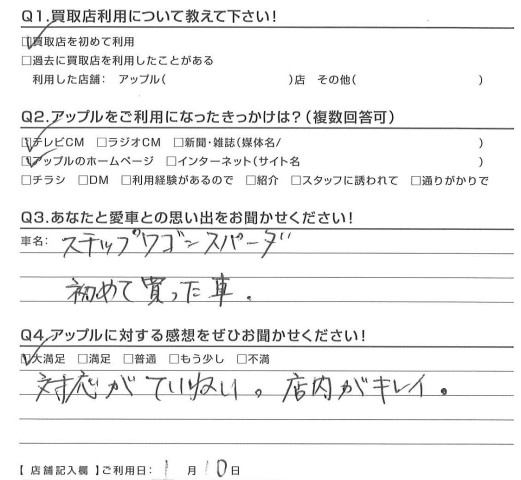 Q1.買取店利用について教えて下さい!
☑買取店を初めて利用
□過去に買取店を利用したことがある
利用した店舗: アップル( )店 その他( )
Q2.アップルをご利用になったきっかけは?(複数回答可)
☑テレビCM □ラジオCM □新聞・雑誌(媒体名/ )
☑アップルのホームページ □インターネット(サイト名 )
□チラシ □DM □利用経験があるので □紹介 □スタッフに誘われて □通りがかりで
Q3.あなたと愛車との思い出をお聞かせください!
車名: ステップワゴンスパーダ
初めて買った車.
Q4.アップルに対する感想をぜひお聞かせください!
☑大満足 □満足 □普通 □もう少し □不満
対応がていねい。店内がキレイ。
【 店舗記入欄 】ご利用日: 1 月 10 日